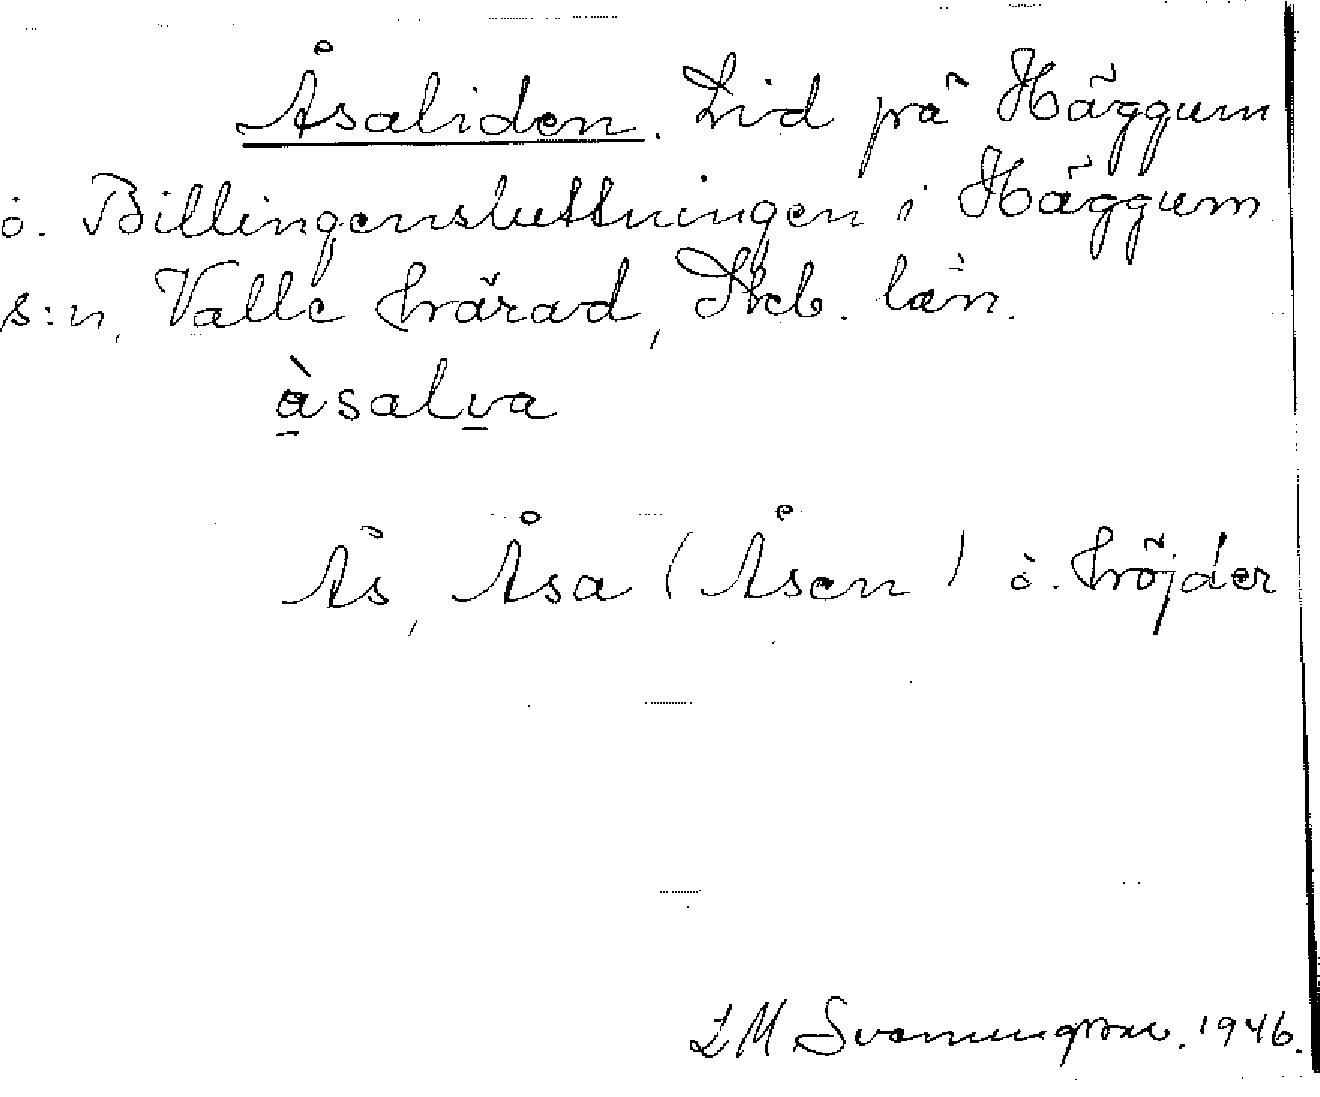 Åsaliden. Lid på Häggum
ö. Billingensluttningen i Häggum
s:n, Valle härad, Skb. län.
àsalva
Ås, Åsa (Åsen) ö. höjder
L M Svanungsson. 1946.